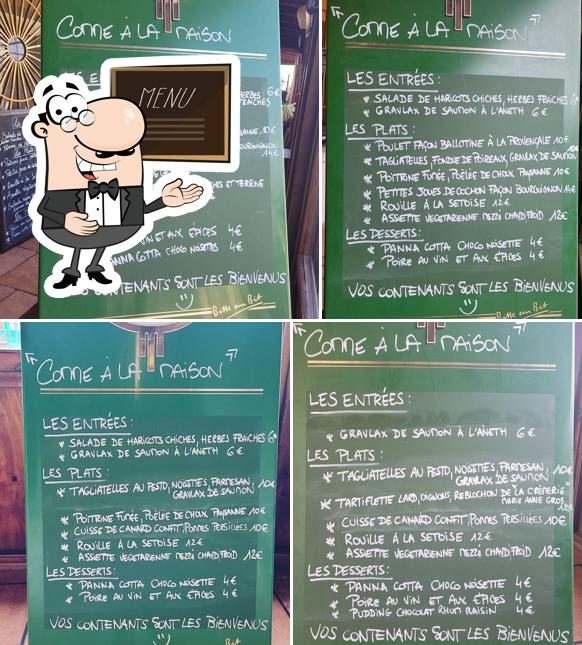 COMME À LA MAISON
LES E
HERBES 6€
FRAÎCHES
MENU
YSANNE 10€
BOURGUIGNON
14€
CHES ET TERRINE
VIN ET AUX ÉPICES 4€
ANNA COTTA CHOCO NOISETTES 4€
VOS CONTENANTS SONT LES BIENVENUS
Bitte ein Bit
COMME À LA MAISON
LES ENTRÉES :
* SALADE DE HARICOTS CHICHES, HERBES FRAICHES 6€
* GRAVLAX DE SAUMON À L'ANETH 6€
LES PLATS :
* POULET FAÇON BALLOTINE À LA PROVENÇALE 10€
* TAGLIATELLES, FONDUE DE POIREAUX, GRAVLAX DE SAUMON 10€
* POITRINE FUMÉE, POÊLÉE DE CHOUX PAYSANNE 10€
* PETITES JOUES DE COCHON FAÇON BOURGUIGNON 14€
* ROUILLE À LA SETOISE 12€
* ASSIETTE VEGETARIENNE MEZZÉ CHAUD/FROID 12€
LES DESSERTS :
* PANNA COTTA CHOCO NOISETTE 4€
* POIRE AU VIN ET AUX ÉPICES 4€
VOS CONTENANTS SONT LES BIENVENUS
Bitte ein Bit
COMME À LA MAISON
LES ENTRÉES :
* SALADE DE HARICOTS CHICHES, HERBES FRAICHES 6€
* GRAVLAX DE SAUMON À L'ANETH 6€
LES PLATS :
* TAGLIATELLES AU PESTO, NOISETTES, PARMESAN, 10€
GRAVLAX DE SAUMON
* POITRINE FUMÉE, POÊLÉE DE CHOUX PAYSANNE 10€
* CUISSE DE CANARD CONFIT, POMMES PERSILLÉES 10€
* ROUILLE À LA SETOISE 12€
* ASSIETTE VEGETARIENNE MEZZÉ CHAUD/FROID 12€
LES DESSERTS :
* PANNA COTTA CHOCO NOISETTE 4€
* POIRE AU VIN ET AUX ÉPICES 4€
VOS CONTENANTS SONT LES BIENVENUS
Bit
COMME À LA MAISON
LES ENTRÉES :
* GRAVLAX DE SAUMON À L'ANETH 6€
LES PLATS :
* TAGLIATELLES AU PESTO, NOISETTES, PARMESAN, 10€
GRAVLAX DE SAUMON
* TARTIFLETTE LARD, OIGNONS, REBLOCHON DE LA CRÈMERIE
MARIE ANNE GROS 12€
* CUISSE DE CANARD CONFIT, POMMES PERSILLÉES 10€
* ROUILLE À LA SETOISE 12€
* ASSIETTE VEGETARIENNE MEZZÉ CHAUD/FROID 12€
LES DESSERTS :
* PANNA COTTA CHOCO NOISETTE 4€
* POIRE AU VIN ET AUX ÉPICES 4€
* PUDDING CHOCOLAT RHUM RAISIN 4€
VOS CONTENANTS SONT LES BIENVENUS